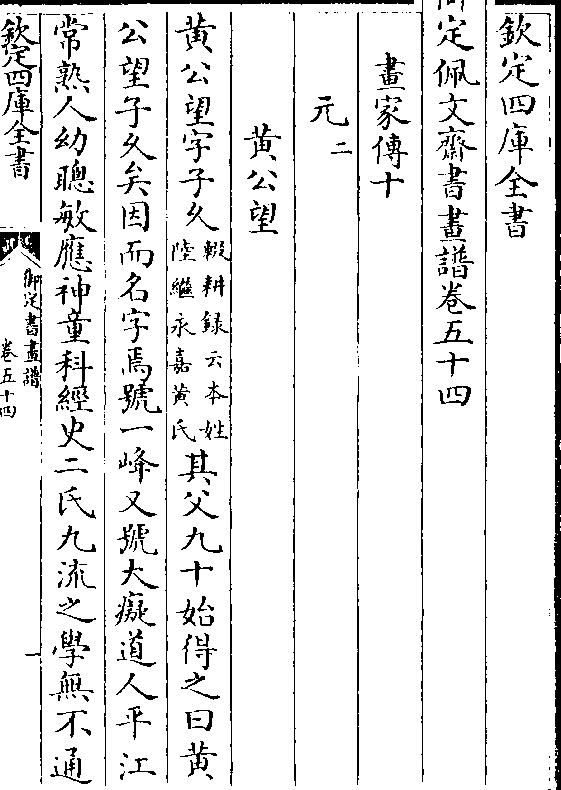 欽定四庫全書
御定佩文齋書畫譜卷五十四
畫家傳十
元二
黄公望
黄公望字子久輟耕録云本姓陸繼永嘉黄氏其父九十始得之曰黄
公望子久矣因而名字焉號一峰又號大癡道人平江
常熟人幼聰敏應神童科經史二氏九流之學無不通
欽定四庫全書
御定書畫譜
卷五十四
一